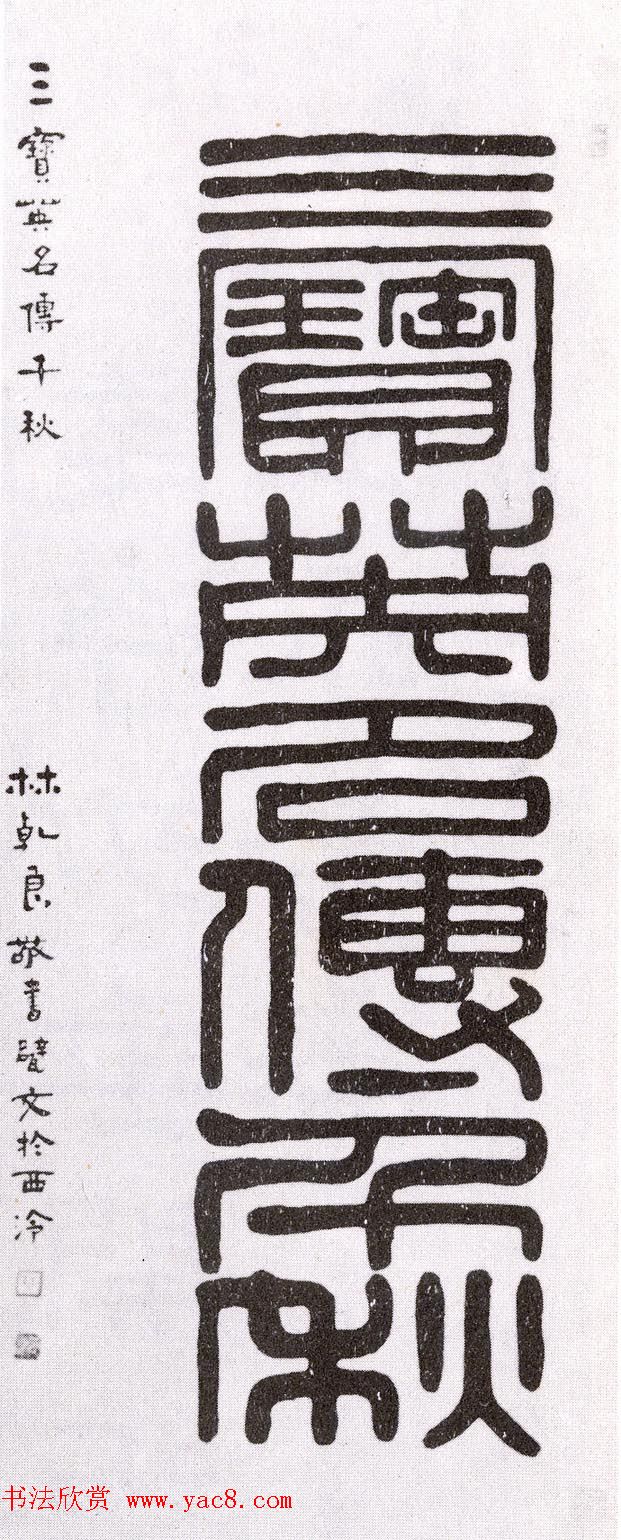 三寶英名傳千秋
三寶英名傳千秋
林乾良敬書甓文於西泠
书法欣赏 www.yac8.com